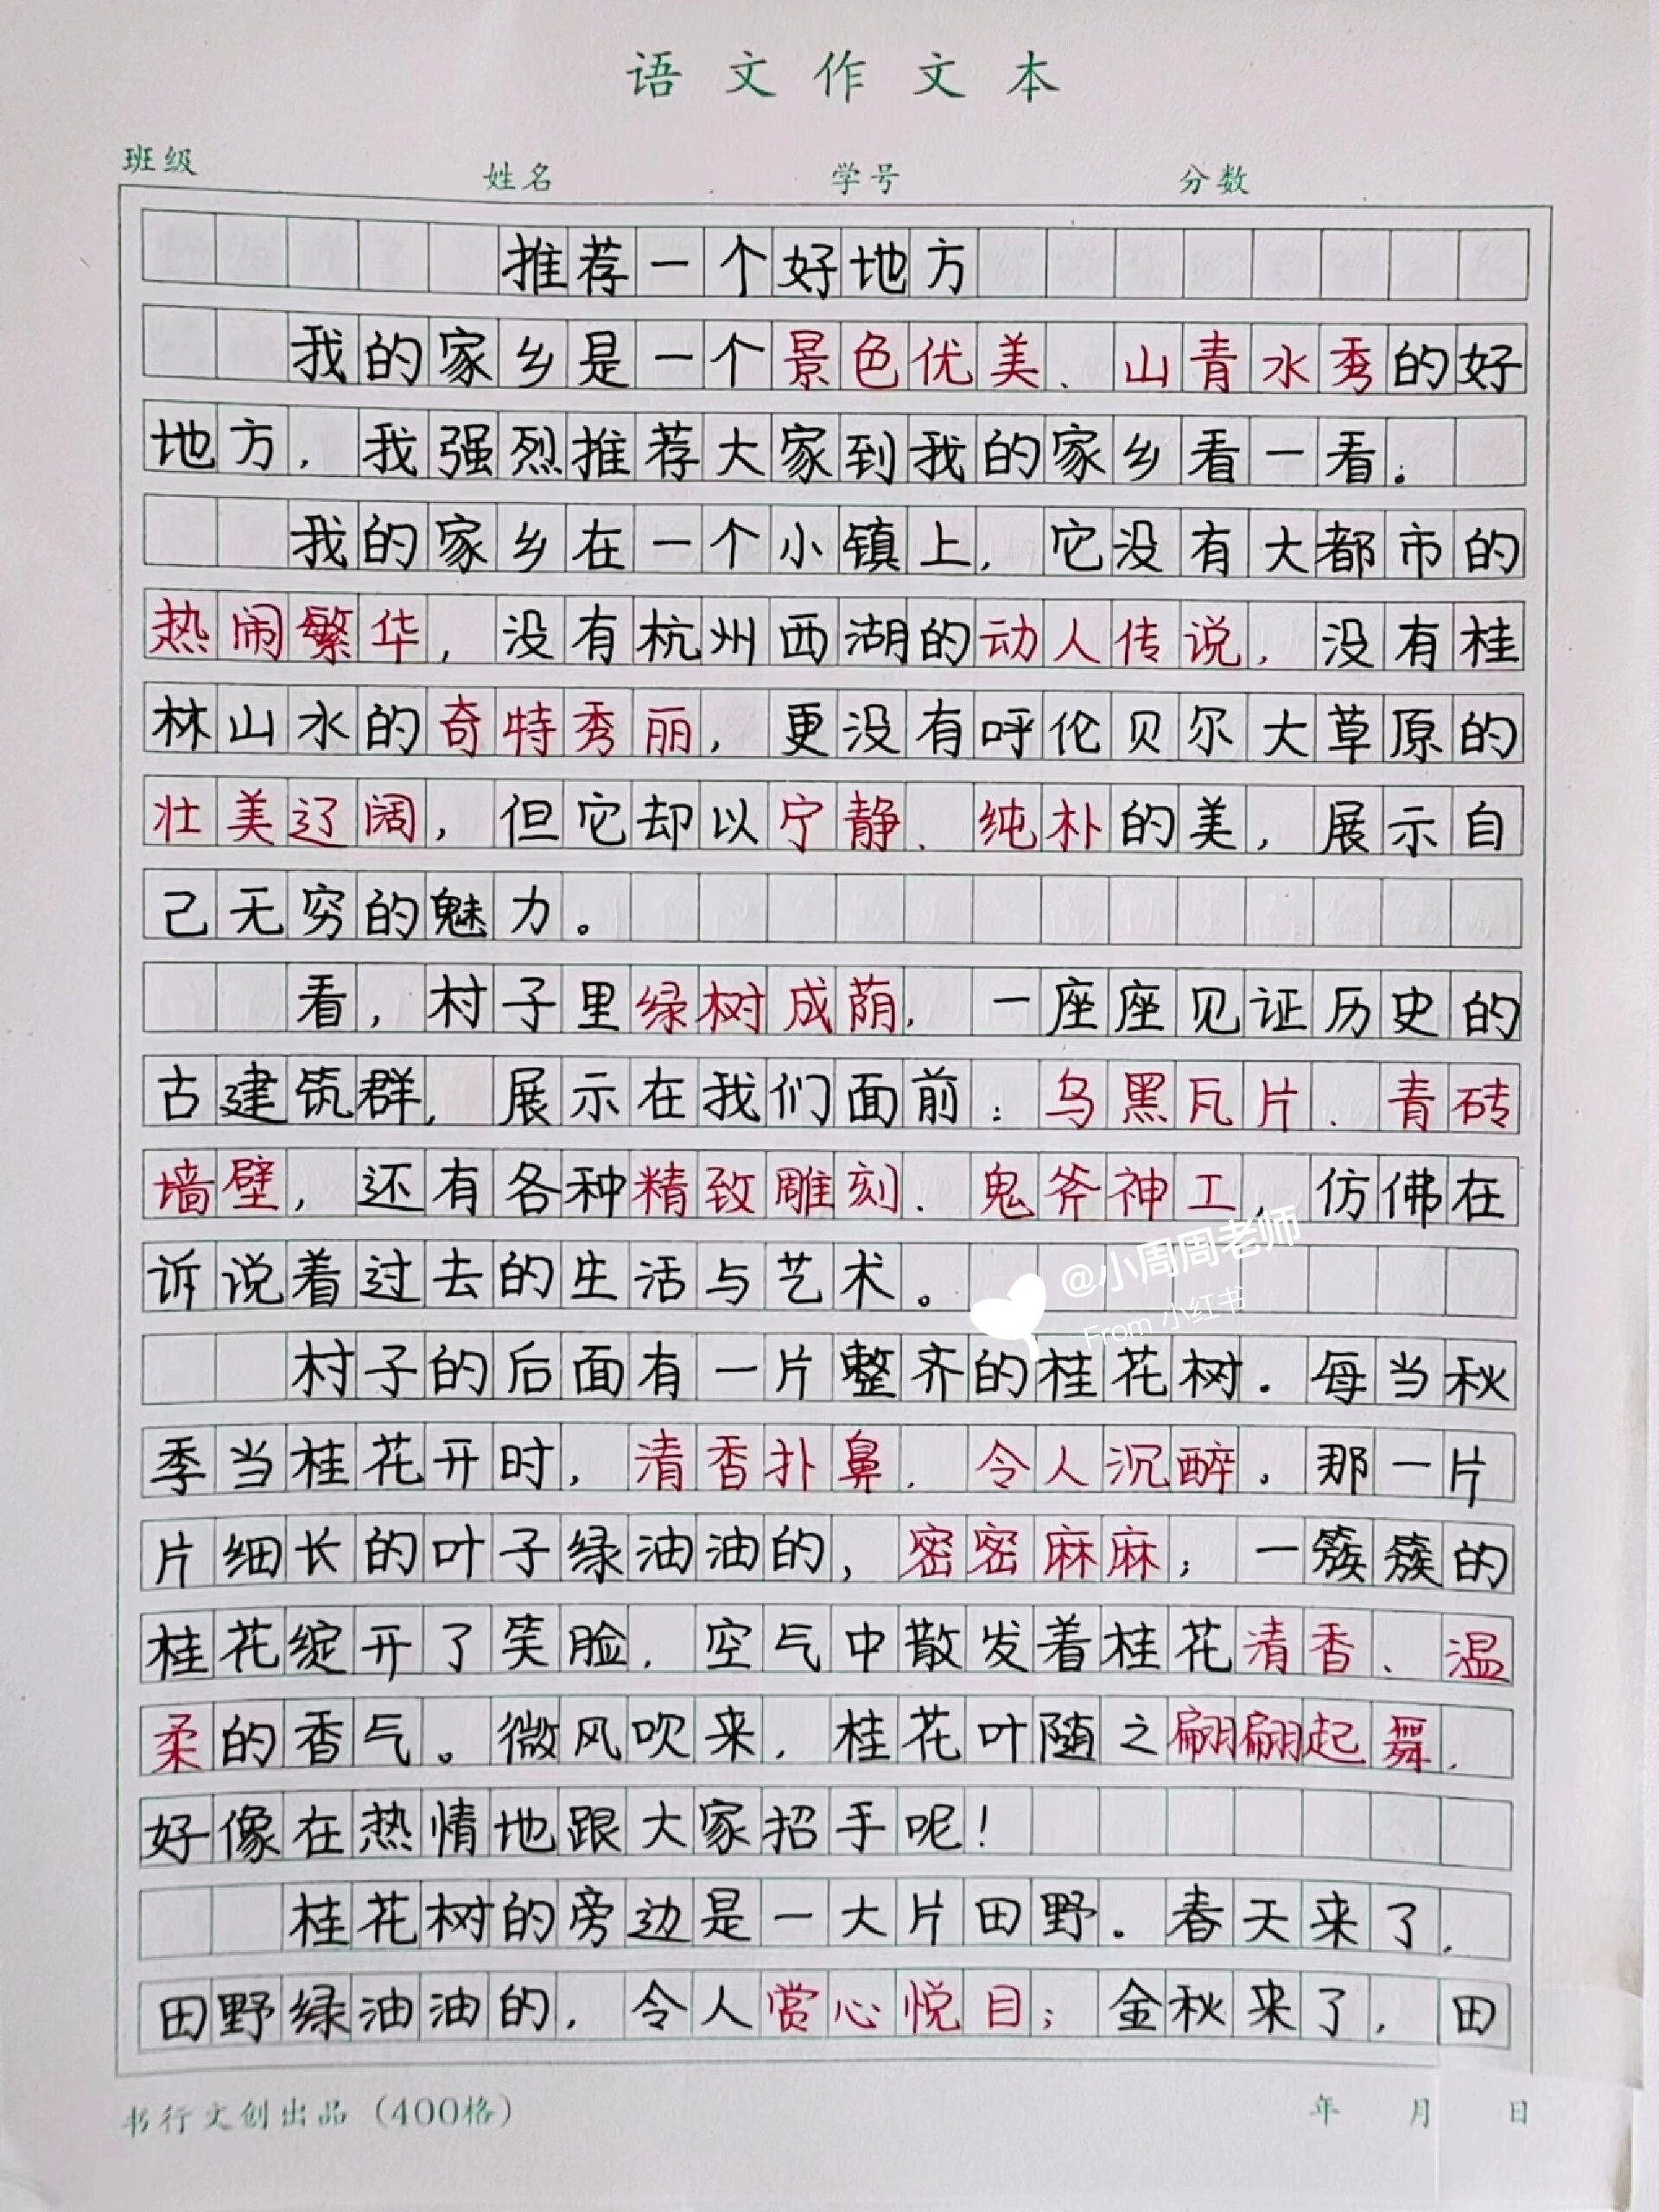 语文作文本
班级 姓名 学号 分数
推荐一个好地方
我的家乡是一个景色优美、山青水秀的好
地方，我强烈推荐大家到我的家乡看一看。
我的家乡在一个小镇上，它没有大都市的
热闹繁华，没有杭州西湖的动人传说，没有桂
林山水的奇特秀丽，更没有呼伦贝尔大草原的
壮美辽阔，但它却以宁静、纯朴的美，展示自
己无穷的魅力。
看，村子里绿树成荫，一座座见证历史的
古建筑群，展示在我们面前：乌黑瓦片、青砖
墙壁，还有各种精致雕刻、鬼斧神工，仿佛在
诉说着过去的生活与艺术。
@小周周老师
From 小红书
村子的后面有一片整齐的桂花树。每当秋
季当桂花开时，清香扑鼻，令人沉醉。那一片
片细长的叶子绿油油的，密密麻麻；一簇簇的
桂花绽开了笑脸，空气中散发着桂花清香、温
柔的香气。微风吹来，桂花叶随之翩翩起舞，
好像在热情地跟大家招手呢！
桂花树的旁边是一大片田野。春天来了，
田野绿油油的，令人赏心悦目；金秋来了，田
书行文创出品（400格） 年 月 日